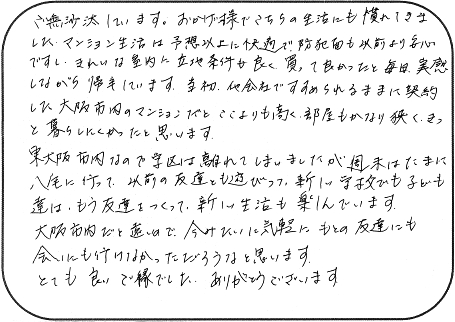 ご無沙汰しています。おかげ様でこちらの生活にも慣れてきま
した。マンション生活は予想以上に快適で防犯面も以前より安心
です。きれいな室内に立地条件も良く、買って良かったと毎日、実感
しながら帰宅しています。当初、他会社ですすめられるままに契約
した大阪市内のマンションだと、ここよりも高く、部屋もかなり狭く、きっ
と暮らしにくかったと思います。
東大阪市内なので学区は離れてしまいましたが週末はたまに
八尾に行って、以前の友達とも遊びつつ、新しい学校でも子ども
達は、もう友達をつくって、新しい生活も楽しんでいます。
大阪市内だと遠いので、今みたいに気軽にもとの友達にも
会いにも行けなかっただろうなと思います。
とても良いご縁でした。ありがとうございます